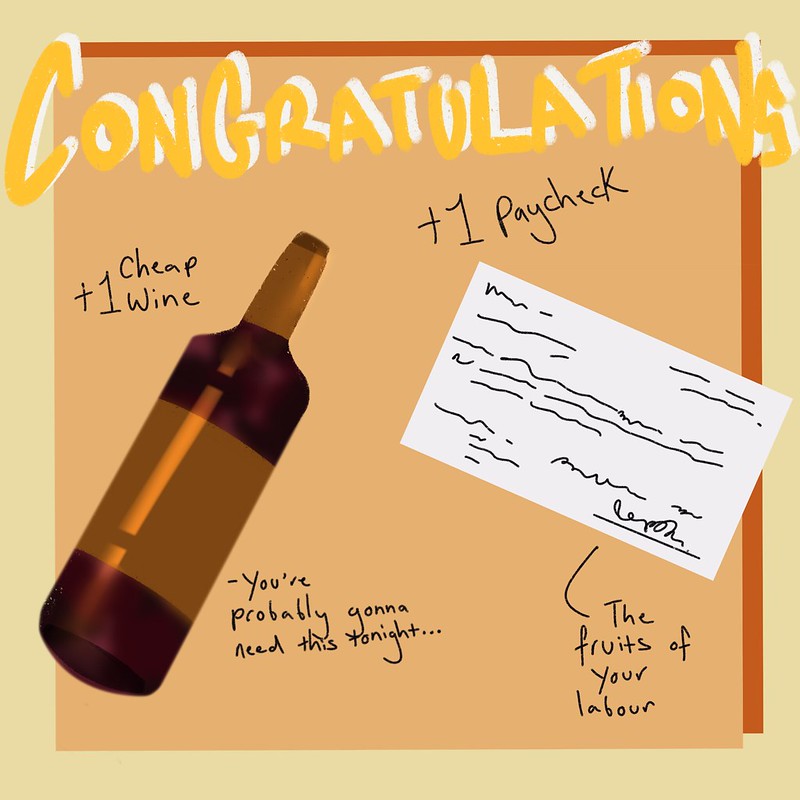 CONGRATULATIONS
+1 Paycheck
+1 Cheap
Wine
-You're
probably gonna
need this tonight...
The
fruits of
your
labour